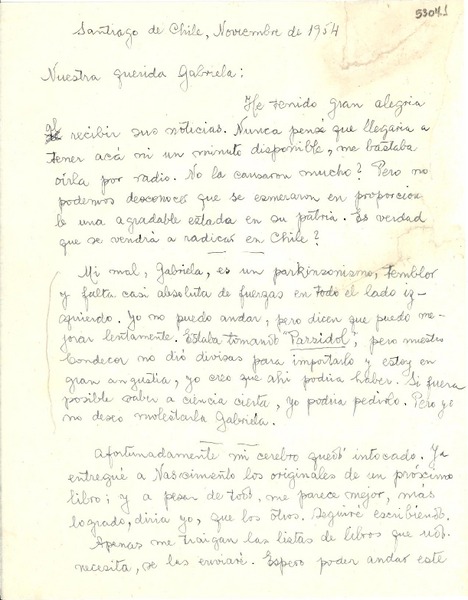 53041
Santiago de Chile, Noviembre de 1954
Nuestra querida Gabriela:
He tenido gran alegria
al recibir sus noticias. Nunca pensé que llegaria a
tener acá ni un minuto disponible, me bastaba
oirla por radio. No la causaron mucho? Pero no
podemos desconocer que se esmeraron en proporcionar
le una agradable estada en su patria. Es verdad
que se vendrá a radicar en Chile?
Mi mal, Gabriela, es un parkinsonismo, temblor
y falta casi absoluta de fuerzas en todo el lado iz-
quierdo. Yo no puedo andar, pero dicen que puedo me-
jorar lentamente. Estaba tomando "Parsidol", pero nuestro
Condecor no dió divisas para importarlo y estoy en
gran angustia, yo creo que ahi podria haber. Si fuera
posible saber a ciencia cierta, yo podria pedirlo. Pero yo
no deseo molestarla Gabriela.
Afortunadamente mi cerebro quedó intocado. Ya
entregué a Nascimento los originales de un próximo
libro; y a pesar de todo, me parece mejor, mas
logrado, diria yo, que los otros. Seguiré escribiendo.
Apenas me traigan las listas de libros que Ud.
necesita, se las enviaré. Espero poder andar este